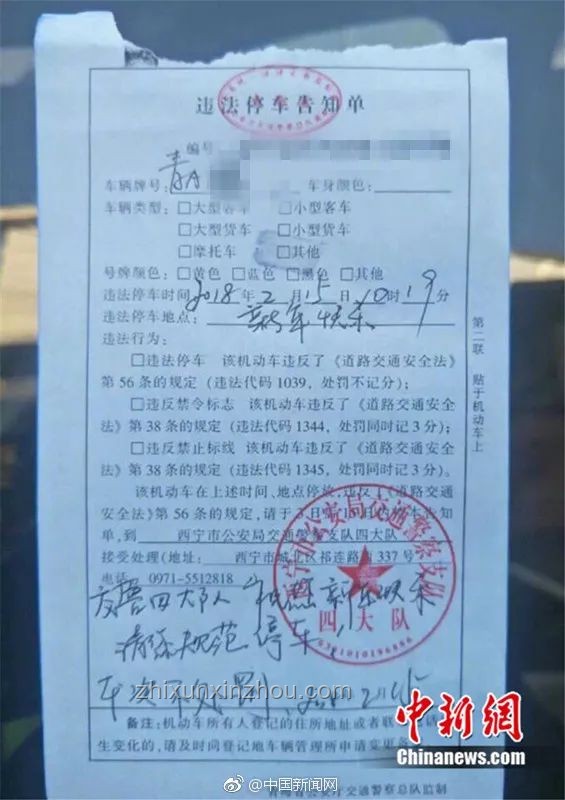 违法停车告知单
编号
车辆牌号：青A 车身颜色：
车辆类型：□大型客车 □小型客车
□大型货车 □小型货车
□摩托车 □其他
号牌颜色：□黄色 □蓝色 □黑色 □其他
违法停车时间2018年2月15日10时19分
违法停车地点：新年快乐
违法行为：
□违法停车 该机动车违反了《道路交通安全法》
第56条的规定（违法代码1039，处罚不记分）；
□违反禁令标志 该机动车违反了《道路交通安全
法》第38条的规定（违法代码1344，处罚同时记3分）；
□违反禁止标线 该机动车违反了《道路交通安全
法》第38条的规定（违法代码1345，处罚同时记3分）。
该机动车在上述时间、地点停放，违反了《道路交通
安全法》第56条的规定，请于3日 15日内持本告知
单，到 西宁市公安局交通警察支队四大队
接受处理（地址： 西宁市城北区祁连路 337号
电话 0971-5512818
交警四大队 祝您新年快乐
请您规范停车！
本次不处罚 2月15
备注：机动车所有人登记的住所地址或者联系电话
生变化的，请及时向登记地车辆管理所申请变更备
青海省公安厅交通警察总队监制
第二联 贴于机动车上
西宁市公安局交通警察支队
四大队
6301010196886
zhixunxinwen.com
中新网
Chinanews.com
@中国新闻网